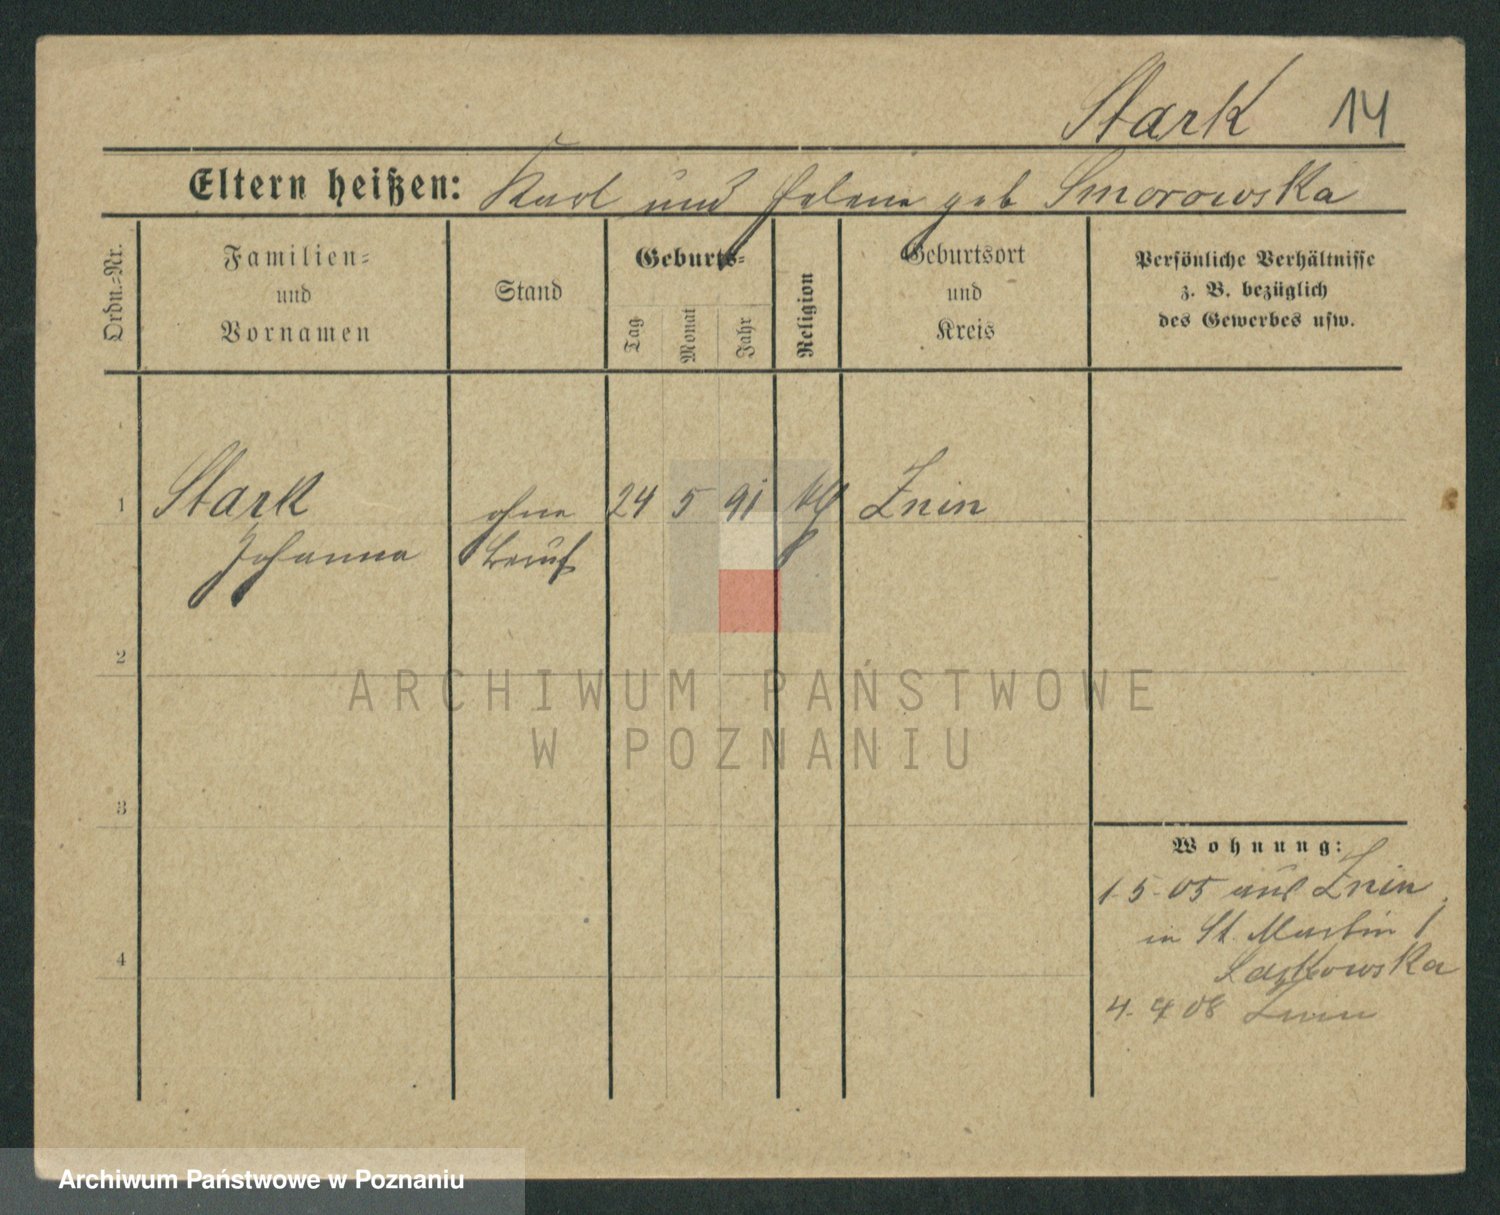 Stark 14
Eltern heißen: Karl und Helene geb Smorowska
Ordn.-Nr.
Familien-
und
Vornamen
Stand
Geburts-
Tag
Monat
Jahr
Religion
Geburtsort
und
Kreis
Persönliche Verhältnisse
z. B. bezüglich
des Gewerbes usw.
1 Stark ohne 24 5 91 Znin
Johanna Beruf
2
ARCHIWUM PAŃSTWOWE
W POZNANIU
3
Wohnung:
1-5-05 aus Znin
in St. Martin
4
4. 4 08 Znin
Archiwum Państwowe w Poznaniu